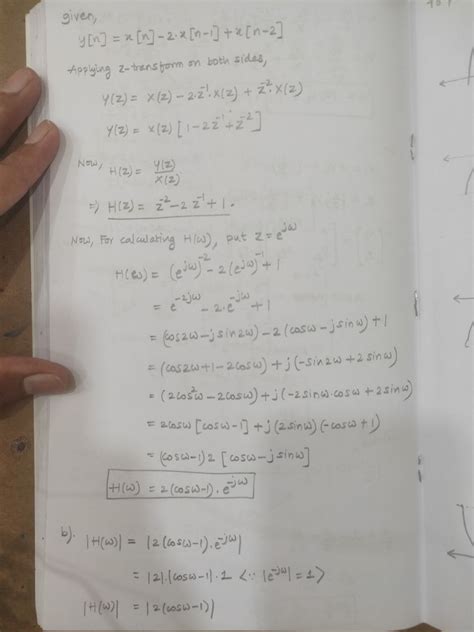 given,
y[n] = x[n] - 2·x[n-1] + x[n-2]
Applying z-transform on both sides,
Y(z) = X(z) - 2·z⁻¹·X(z) + z⁻²·X(z)
Y(z) = X(z) [1 - 2z⁻¹ + z⁻²]
Now, H(z) = Y(z)/X(z)
⇒ H(z) = z⁻² - 2z⁻¹ + 1.
Now, For calculating H(ω), put z = e^jω
H(ω) = (e^jω)⁻² - 2(e^jω)⁻¹ + 1
= e^-2jω - 2·e^-jω + 1
= (cos2ω - jsin2ω) - 2(cosω - jsinω) + 1
= (cos2ω + 1 - 2cosω) + j(-sin2ω + 2sinω)
= (2cos²ω - 2cosω) + j(-2sinω·cosω + 2sinω)
= 2cosω [cosω-1] + j(2sinω)(-cosω+1)
= (cosω-1) 2 [cosω - jsinω]
H(ω) = 2(cosω-1)·e^-jω
b). |H(ω)| = |2(cosω-1)·e^-jω|
= |2|·|cosω-1|·1 <∵ |e^-jω| = 1>
|H(ω)| = |2(cosω-1)|